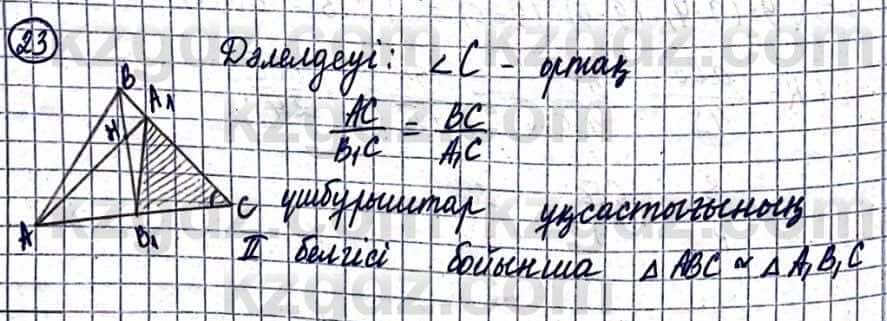 23
Дәлелдеуі: ∠C - ортақ
AC/B₁C = BC/A₁C
үшбұрыштар ұқсастығының
II белгісі бойынша △ABC ∾ △A₁B₁C
B
A₁
H
A
B₁
C
kzgdz.com